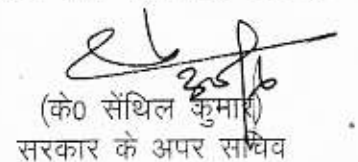 (के0 सेंथिल कुमार)
सरकार के अपर सचिव